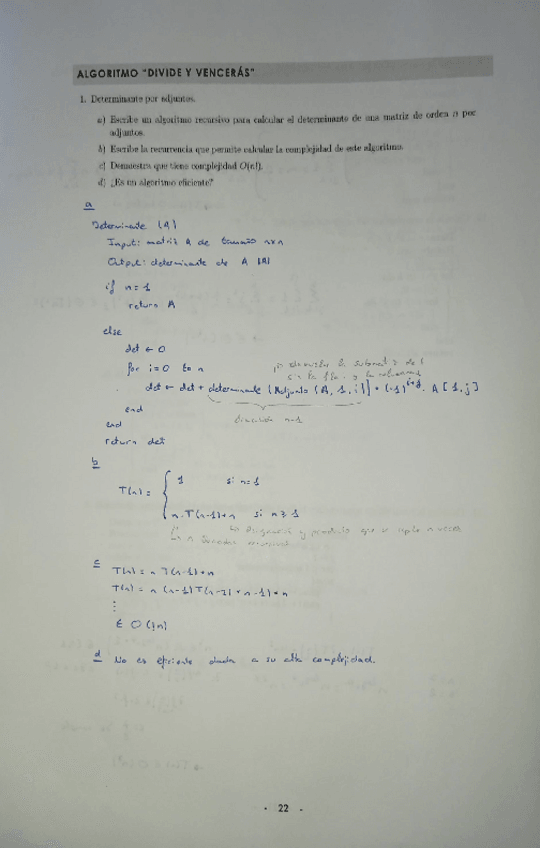 ALGORITMO "DIVIDE Y VENCERÁS"
1. Determinante por adjuntos.
a) Escribe un algoritmo recursivo para calcular el determinante de una matriz de orden n por
adjuntos.
b) Escribe la recurrencia que permite calcular la complejidad de este algoritmo.
c) Demuestra que tiene complejidad O(n!).
d) ¿Es un algoritmo eficiente?
a
Determinante (A)
Input: matriz A de tamaño n×n
Output: determinante de A |A|
if n=1
return A
else
det ← 0
for i=0 to n
la submat
det ← det + determinante (Adjunto (A, 1, i)) * (-1)^{i+j} · A [1, j]
dimensión n-1
end
end
return det
b
T(n) = { 1 si n=1
n·T(n-1)+n si n≥1
y producto que se n veces
n
c
T(n) = n T(n-1)+n
T(n) = n (n-1)T(n-2)+n-1)+n
⋮
∈ O(!n)
d No es eficiente dada a su alta complejidad.
· 22 ·